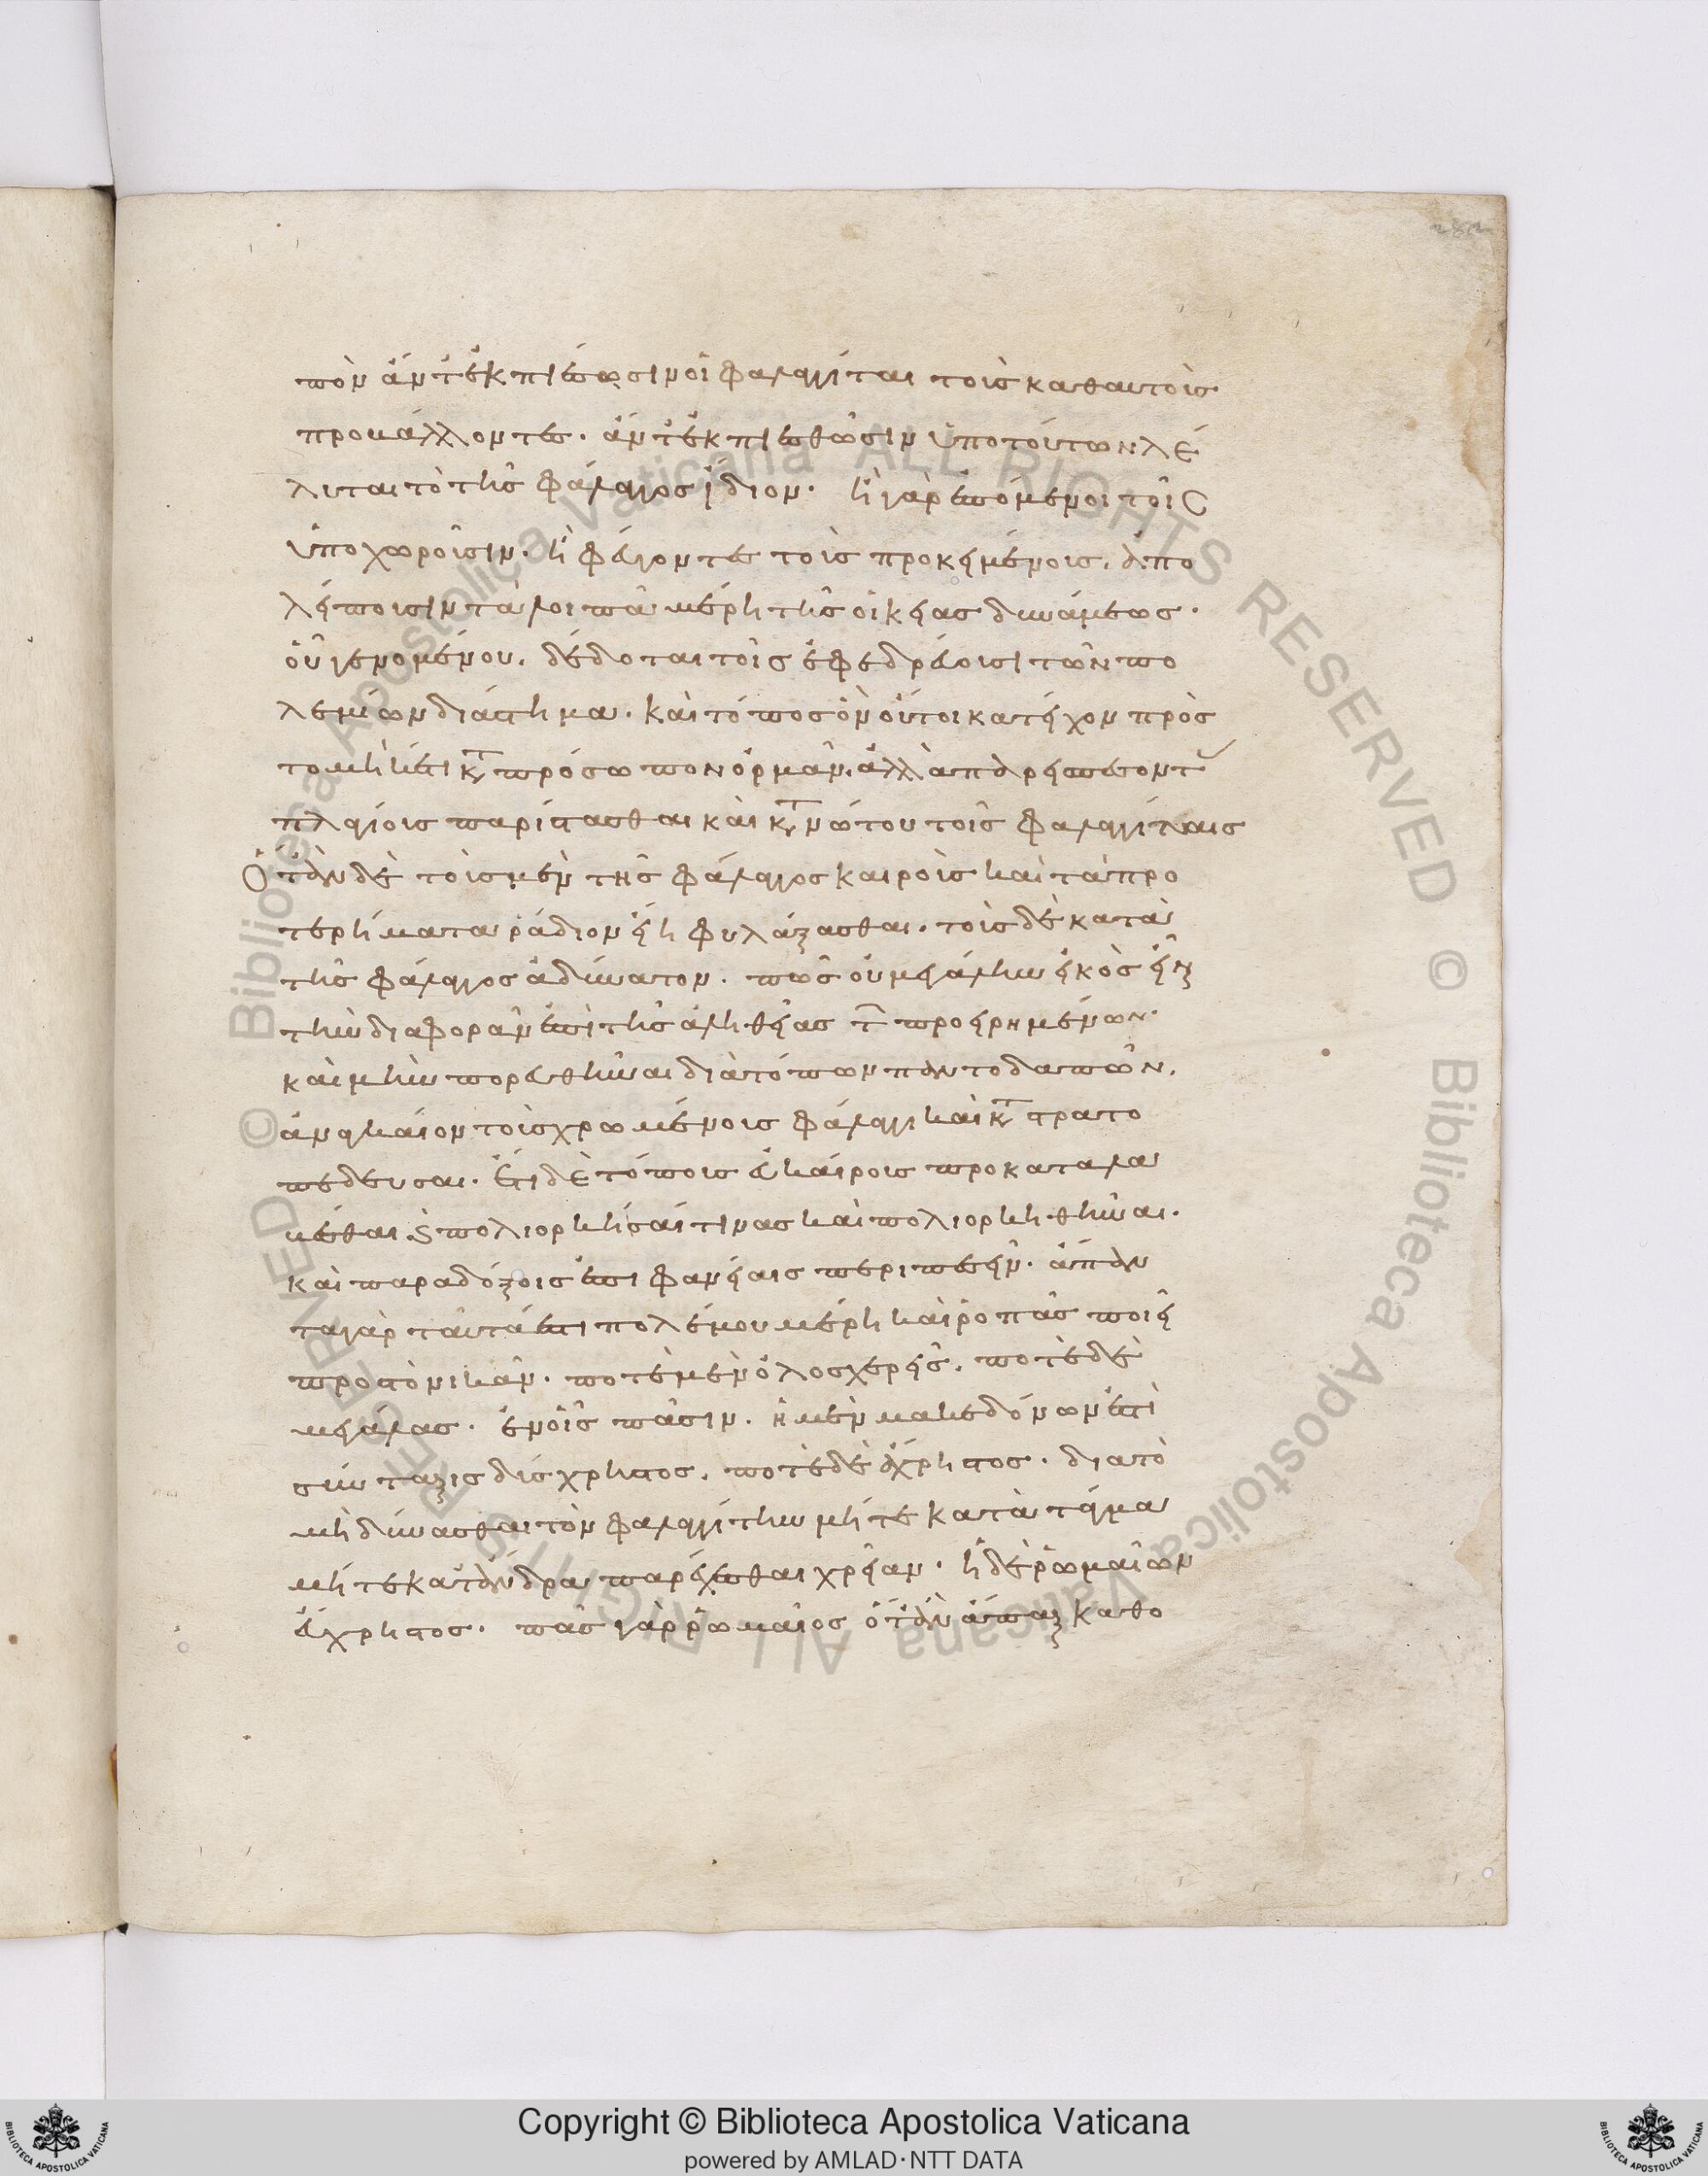 πον ἄν τ' ἐκπιέσωσιν οἱ φαλαγγίται τοὺς καθ' αὑτοὺς
προβάλλοντες. ἄν τ' ἐκπιεσθῶσιν ὑπὸ τούτων λέ
λυται τὸ τῆς φάλαγγος ἴδιον. ἢ γὰρ ἑπόμενοι τοῖς
ὑποχωροῦσιν. ἢ φεύγοντες τοὺς προσκειμένους. ἀπο
λείπουσιν τὰ λοιπὰ μέρη τῆς οἰκείας δυνάμεως.
οὗ γενομένου. δέδοται τοῖς ἐφεδρεύουσι τῶν πο
λεμίων διάστημα. καὶ τόπος ὃν οὗτοι κατεῖχον πρὸς
τὸ μηκέτι κατὰ πρόσωπον ὁρμᾶν. ἀλλὰ παρεισπεσόντας
πλαγίους παρίστασθαι καὶ κατὰ νώτου τοῖς φαλαγγίταις
Ὅταν δὲ τοὺς μὲν τῆς φάλαγγος καιροὺς καὶ τὰ προ
τερήματα ῥάδιον εἴη φυλάξασθαι. τοὺς δὲ κατὰ
τῆς φάλαγγος ἀδύνατον. πῶς οὐ μεγάλην εἰκὸς εἶναι
τὴν διαφορὰν ἐπὶ τῆς ἀληθείας τῶν προειρημένων.
καὶ μὴν πορευθῆναι διὰ τόπων παντοδαπῶν.
ἀναγκαῖον τοὺς χρωμένους φάλαγγι καὶ καταστρατο
πεδεῦσαι. ἔτι δὲ τόπους εὐκαίρους προκαταλα
βέσθαι. καὶ πολιορκῆσαί τινας καὶ πολιορκηθῆναι.
καὶ παραδόξοις ἐπιφανείαις περιπεσεῖν. ἅπαν
τα γὰρ ταῦτά ἐστι πολέμου μέρη καὶ ῥοπὰς ποιεῖ
πρὸς τὸ νικᾶν. ποτὲ μὲν ὁλοσχερεῖς. ποτὲ δὲ
μεγάλας. ἐν οἷς πᾶσιν. ἡ μὲν μακεδόνων ἐστὶ
σύνταξις δύσχρηστος. ποτὲ δὲ ἄχρηστος. διὰ τὸ
μὴ δύνασθαι τὸν φαλαγγίτην μήτε κατὰ τάγμα
μήτε κατ' ἄνδρα παρέχεσθαι χρείαν. ἡ δὲ ῥωμαίων
εὔχρηστος. πᾶς γὰρ ῥωμαῖος ὅταν ἅπαξ καθο
Copyright © Biblioteca Apostolica Vaticana
powered by AMLAD·NTT DATA